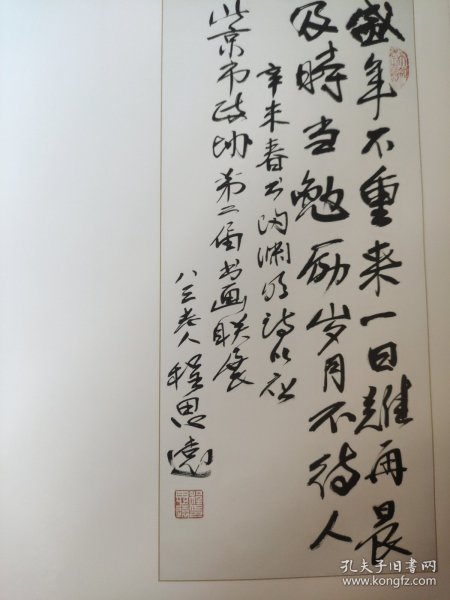 盛年不重来一日難再晨
及時当勉励岁月不待人
辛未春书陶渊明诗以祝
北京市政协第二届书画联展
八三老人程思远
孔夫子旧书网
www.kongfz.com